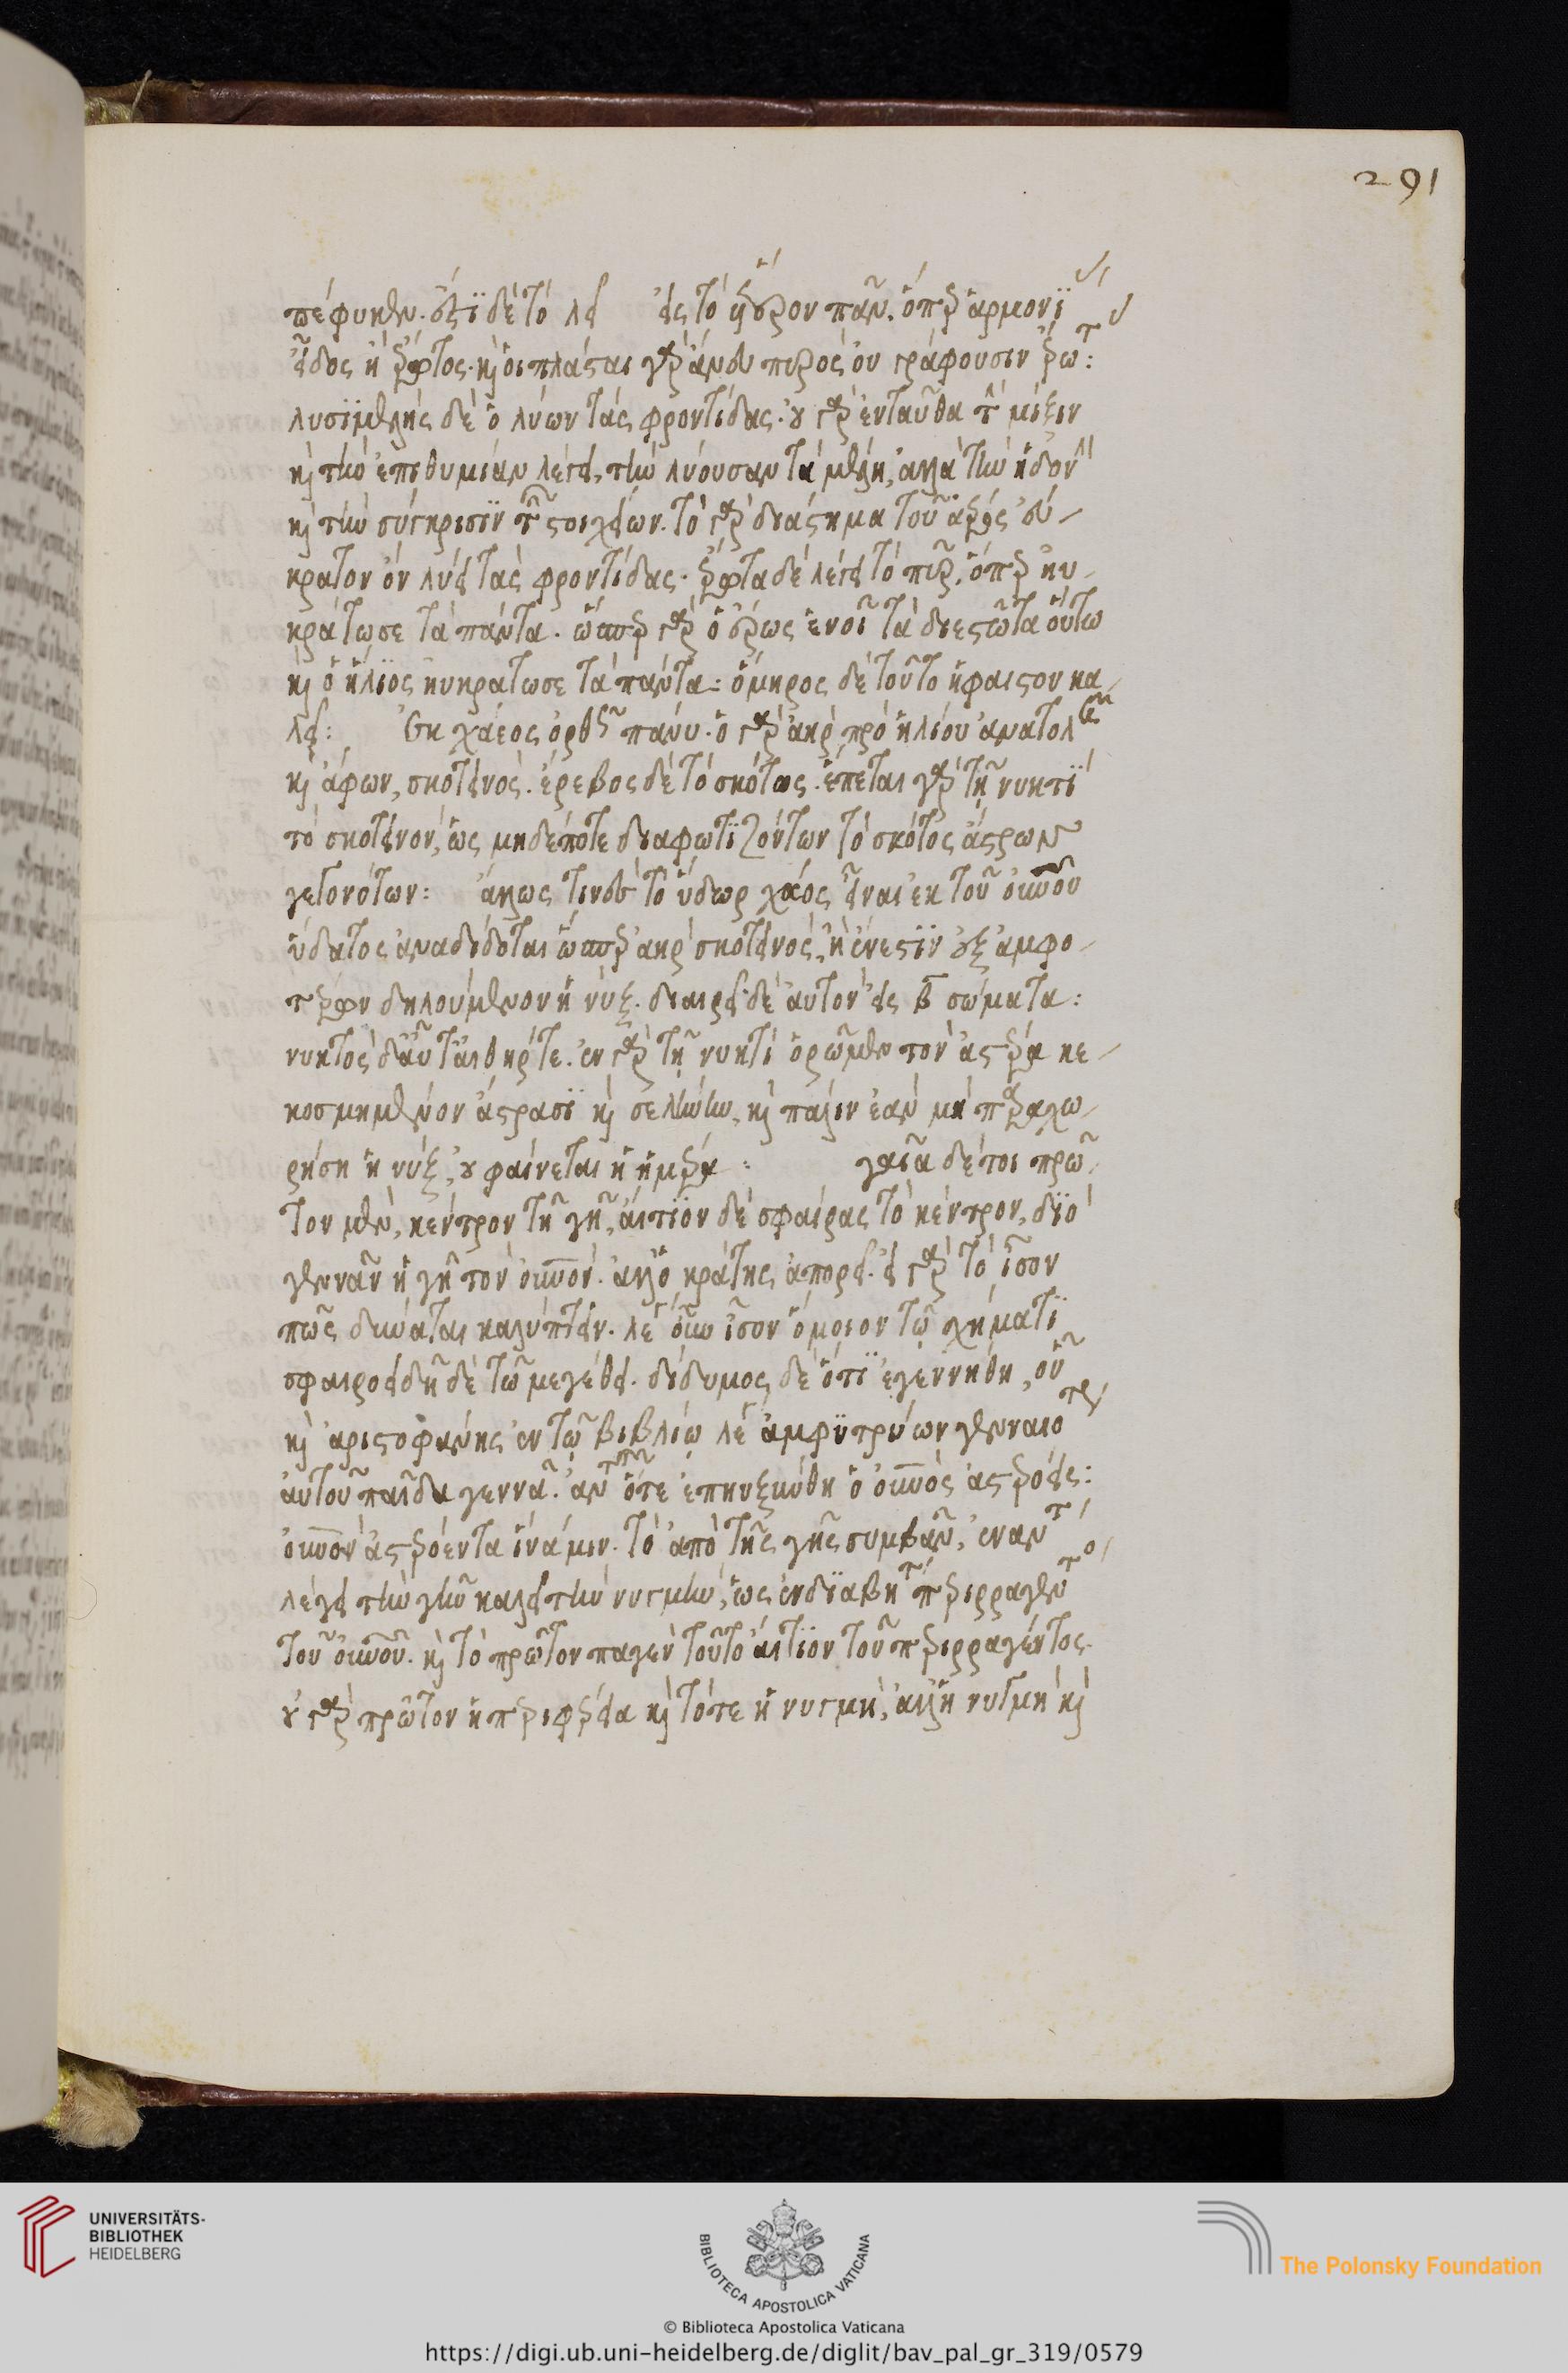 291
πέφυκεν. ἐστὶ δὲ τὸ λεί εἰς τὸ ἥμερον πᾶν. ὅπερ ἁρμονι
εἶδος ἢ ἔρωτος. καὶ οἱ πλάσται γὰρ ἄνευ πυρὸς οὐ γράφουσιν ἔρωτ:
λυσϊμελὴς δὲ ὁ λύων τὰς φροντίδας. οὐ γὰρ ἐνταῦθα τ μίξιν
καὶ τὴν ἐπιθυμίαν λέγει, τὴν λύουσαν τὰ μέλη, ἀλλὰ τὴν ἡδονὴν
καὶ τὴν σύγκρισϊν τῶν στοιχείων. τὸ γὰρ διάστημα τοῦ ἀέρος εὔ-
κρατον ὂν λύει τὰς φροντίδας. ἔρωτα δὲ λέγει τὸ πῦρ, ὅπερ ηὐ-
κράτωσε τὰ πάντα. ὥσπερ γὰρ ὁ ἔρως ἑνοῖ τὰ διεστῶτα οὕτω
καὶ ὁ ἥλϊος ηὐκράτωσε τὰ πάντα: ὅμηρος δὲ τοῦτο ἥφαιστον κα-
λεῖ: Ἐκ χάεος ὀρθῶς πάνυ. ὁ γὰρ ἀὴρ πρὸ ἡλίου ἀνατολῶν
καὶ ἄφων, σκοτεινός. ἔρεβος δὲ τὸ σκότος. ἕπεται γὰρ τῇ νυκτῒ
τὸ σκοτεινόν, ὡς μηδέποτε διαφωτϊζόντων τὸ σκότος ἄστρων
γεγονότων: ἄλλως τινὲς τὸ ὕδωρ χάος εἶναι ἐκ τοῦ οὐνοῦ
ὕδατος ἀναδίδοται ὥσπερ ἀὴρ σκοτεινὸς, ἢ ἔνεστϊν ἐξ ἀμφο-
τέρων δηλούμενον ἡ νύξ. διαιρεῖ δὲ αὐτὸν εἰς β σώματα:
νυκτὸς δ᾽ αὖτ᾽ αἰθήρ τε. ἐν γὰρ τῇ νυκτὶ ὁρῶμεν τὸν ἀστέρα κε-
κοσμημένον ἄστρασϊ καὶ σελήνην, καὶ πάλιν ἐὰν μὴ παραχω-
ρήση ἡ νύξ, οὐ φαίνεται ἡ ἡμέρα: γαῖα δέ τοι πρῶ-
τον μὲν, κέντρον τῆ γῆ, αἴτϊον δὲ σφαίρας τὸ κέντρον, δϊὸ
γεννᾶν ἡ γῆ τὸν οὐνόν. ἀλλ᾽ ὁ κράτης ἀπορεῖ. εἰ γὰρ τὸ ἶσον
πῶς δύναται καλύπτειν. λέγ οὖν ἶσον ὅμοιον τῷ σχήματϊ
σφαιροειδῆ δὲ τῶ μεγέθει. δίδυμος δὲ ὅτϊ ἐγεννήθη, οὖ
καὶ ἀριστοφάνης ἐν τῷ βιβλίῳ λέγ ἀμφϊτρύων γενναιοτερ
αὐτοῦ παῖδα γεννᾶ. ὅτε ἐπηυξήθη ὁ οὐνὸς ἀστρόεις:
οὐνὸν ἀστρόεντα ἵνά μιν. τὸ ἀπὸ τῆς γῆς συμβᾶν, ἐναντ
λέγει τὴν γῆν καλεῖ τὴν νυγμὴν, ὡς ἐν διαβήτ περιρραγέντος
τοῦ οὐνοῦ. καὶ τὸ πρῶτον παγὲν τοῦτο αἴτϊον τοῦ περιρραγέντος.
οὐ γὰρ πρῶτον ἡ περιφέρεια καὶ τότε ἡ νυγμὴ, ἀλλ᾽ ἡ νυγμὴ καὶ
UNIVERSITÄTS-
BIBLIOTHEK
HEIDELBERG
BIBLIOTECA APOSTOLICA VATICANA
The Polonsky Foundation
© Biblioteca Apostolica Vaticana
https://digi.ub.uni-heidelberg.de/diglit/bav_pal_gr_319/0579